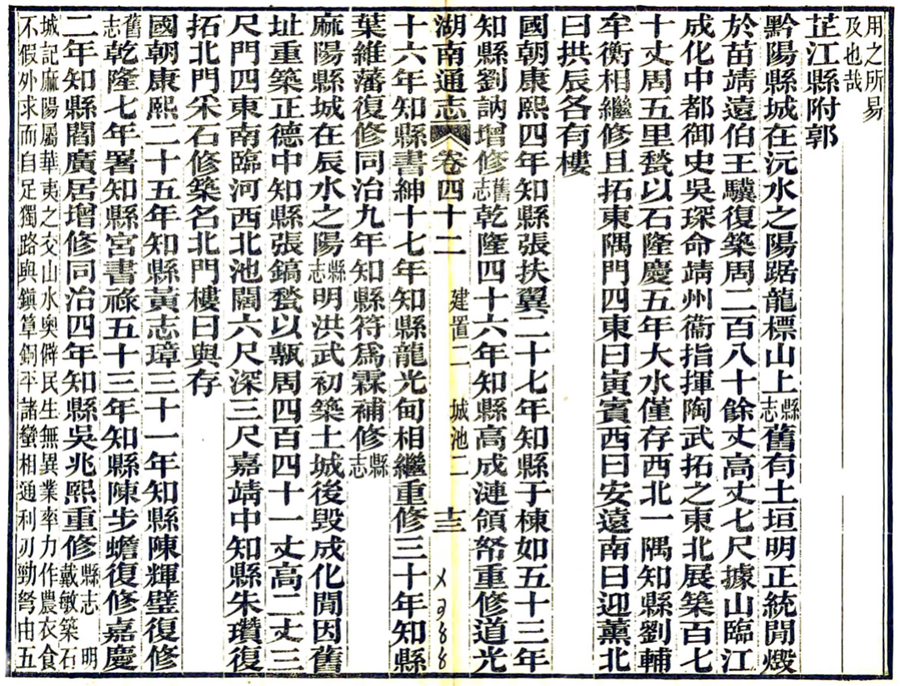 用之所易
及也哉
芷江縣附郭
黔陽縣城在沅水之陽踞龍標山上縣志舊有土垣明正統閒燬
於苗靖遠伯王驥復築周二百八十餘丈高丈七尺據山臨江
成化中都御史吳琛命靖州衞指揮陶武拓之東北展築百七
十丈周五里甃以石隆慶五年大水僅存西北一隅知縣劉輔
牟衡相繼修且拓東隅門四東曰寅賓西曰安遠南曰迎薰北
曰拱辰各有樓
國朝康熙四年知縣張扶翼二十七年知縣于棟如五十三年
知縣劉訥增修舊志乾隆四十六年知縣高成漣領帑重修道光
湖南通志 卷四十二 建置二 城池二 十三
十六年知縣書紳十七年知縣龍光甸相繼重修三十年知縣
葉維藩復修同治九年知縣符爲霖補修縣志
麻陽縣城在辰水之陽縣志明洪武初築土城後毁成化閒因舊
址重築正德中知縣張鎬甃以甎周四百四十一丈高二丈三
尺門四東南臨河西北池闊六尺深三尺嘉靖中知縣朱瓚復
拓北門采石修築名北門樓曰與存
國朝康熙二十五年知縣黃志璋三十一年知縣陳輝璧復修
舊志乾隆七年署知縣宮書祿五十三年知縣陳步蟾復修嘉慶
二年知縣閻廣居增修同治四年知縣吳兆熙重修縣志 明戴敏築石
城記麻陽屬華夷之交山水奥僻民生無異業率力作農衣食
不假外求而自足獨路與鎮筸銅平諸蠻相通利刃勁弩由五